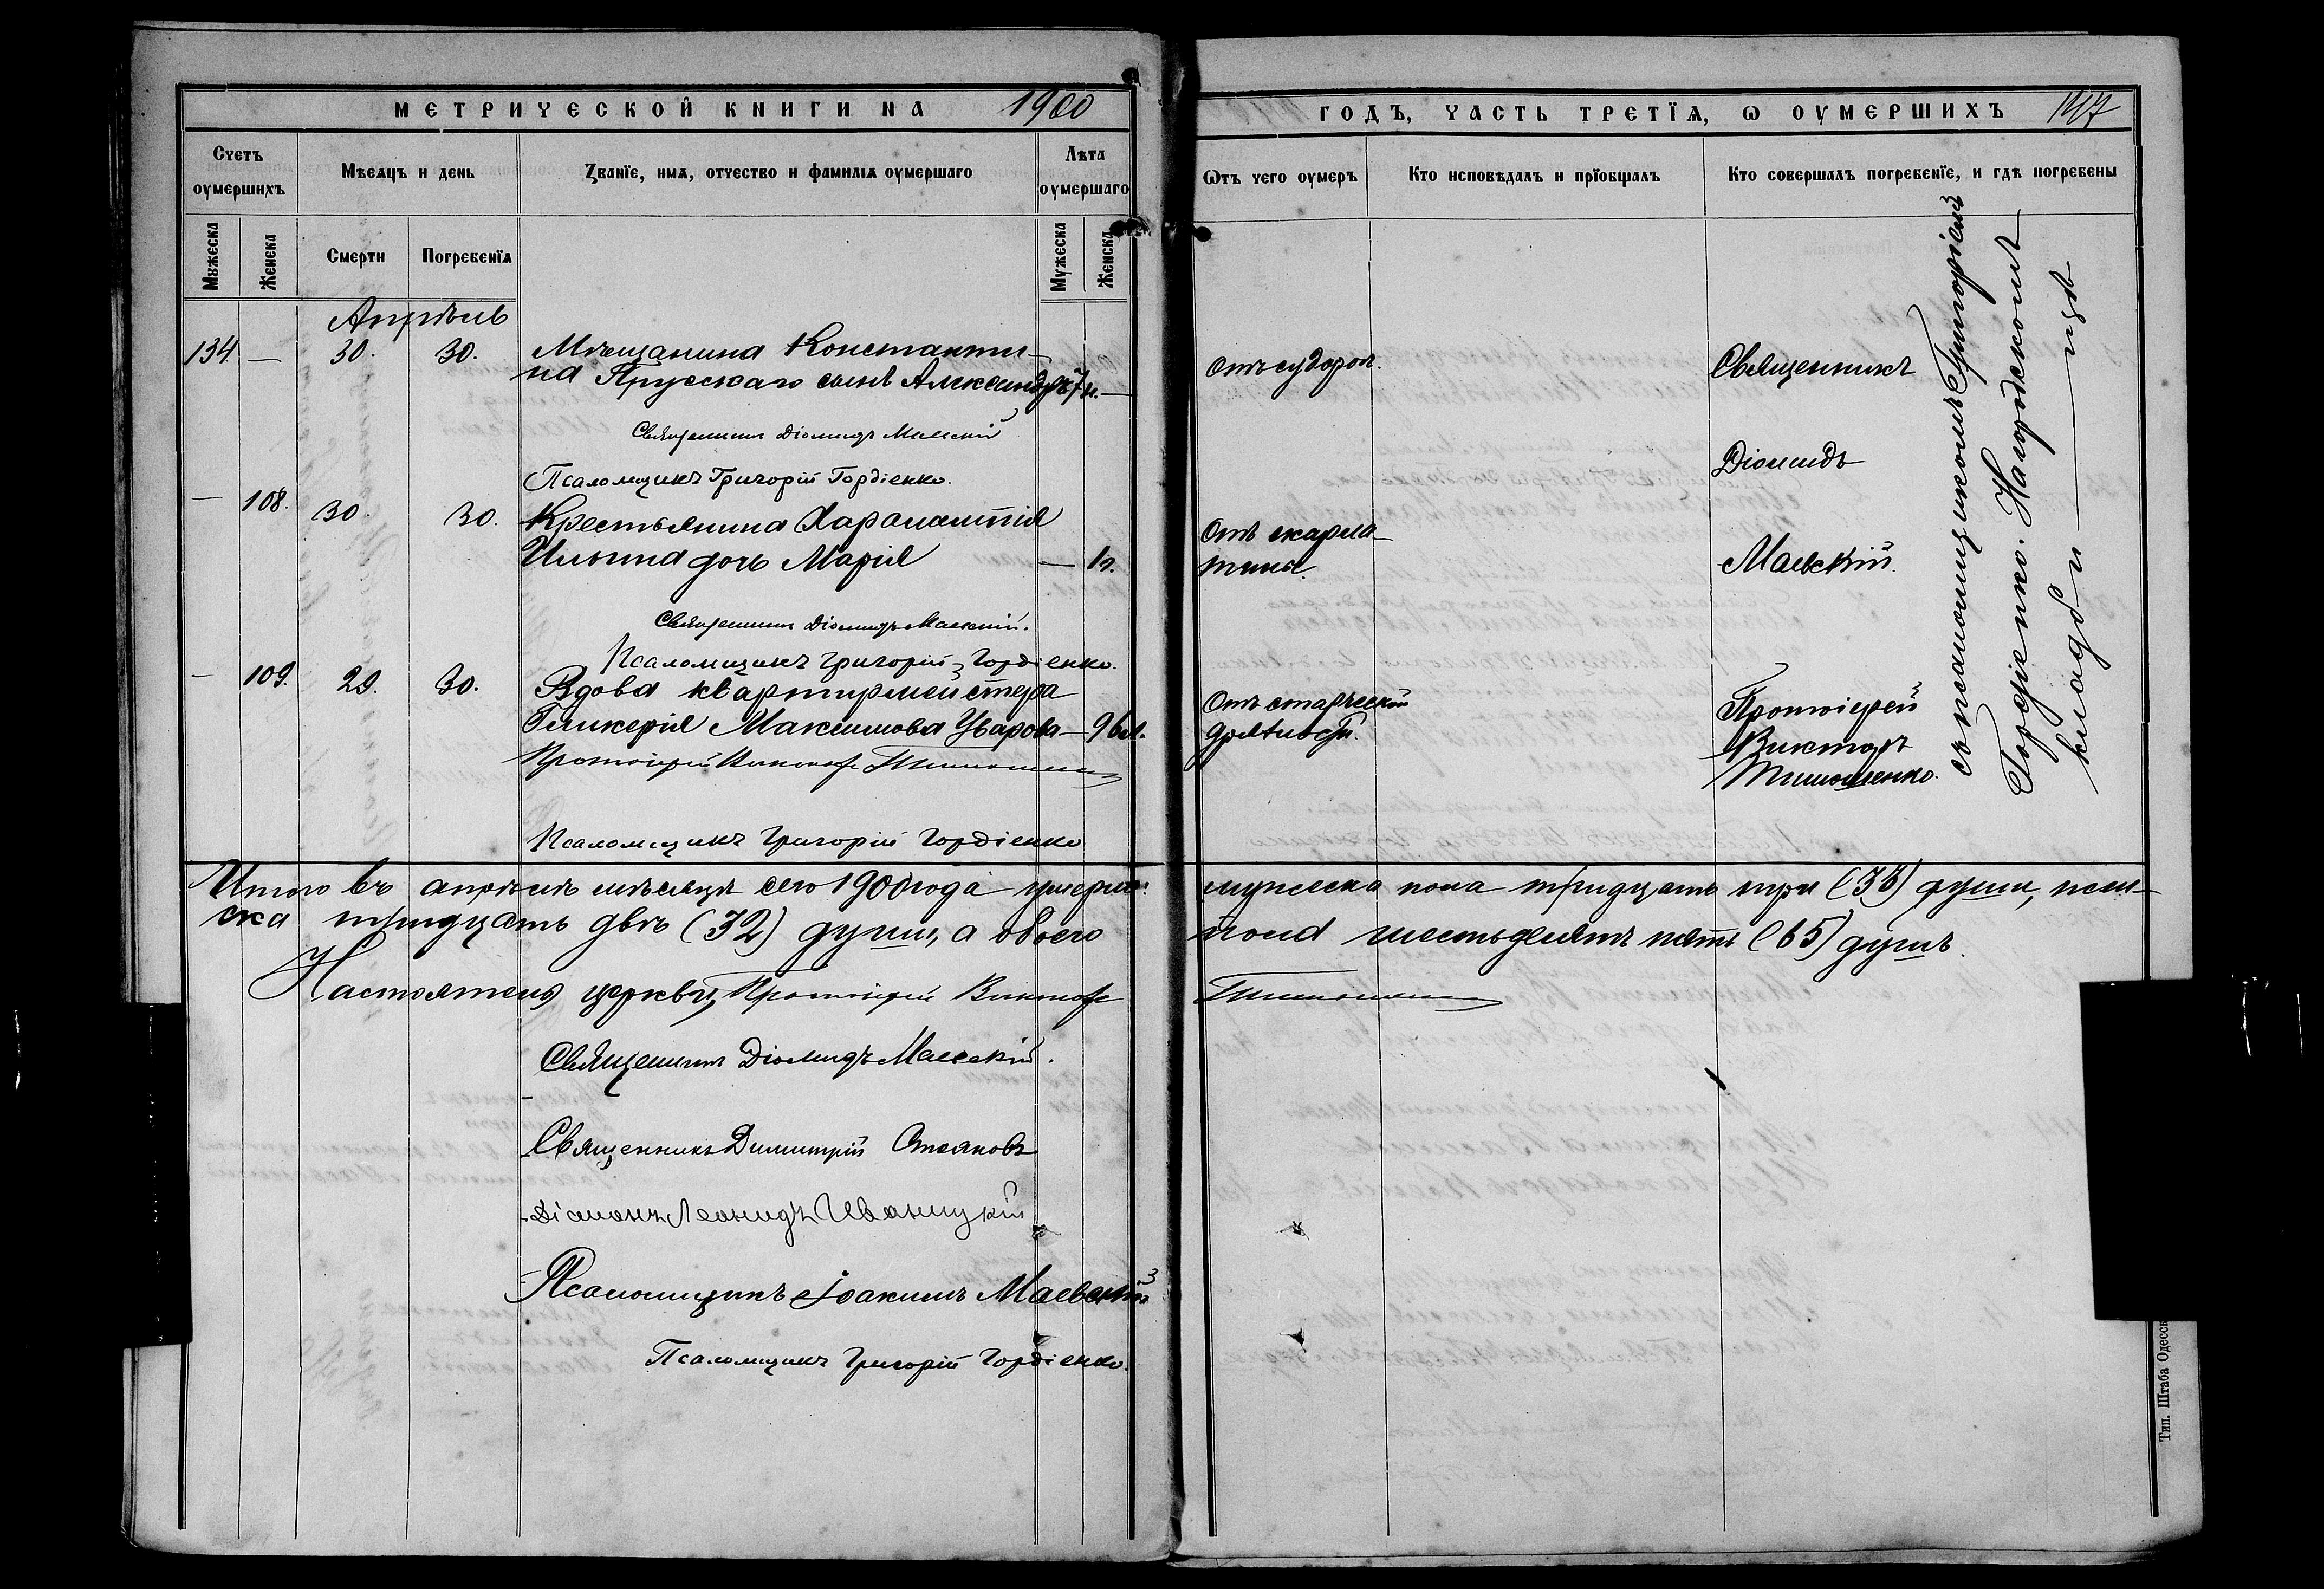 МЕТРИЧЕСКОЙ КНИГИ НА 1900
Счетъ оумершихъ
Мѣсяцъ и день
Званїе, имѧ, отчество и фамилїѧ оумершаго
Лѣта оумершаго
Мужеска
Женска
Смерти
Погребенїѧ
Мужеска
Женска
Апрѣль
134. — 30. 30. Мѣщанина Константи-
на Прусскаго сынъ Александръ 7 —
Священникъ Діомидъ Маевскій
Псаломщикъ Григорій Гордіенко.
— 108. 30. 30. Крестьянина Харалампія
Ильина дочь Марія — 1
Священникъ Діомидъ Маевскій.
Псаломщикъ Григорій Гордіенко.
— 109. 29. 30. Вдова квартирмейстера
Гликерія Максимова Уварова — 96 л.
Протоіерей Викторъ Тимошенко
Псаломщикъ Григорій Гордіенко
Итого въ апрѣлѣ мѣсяцѣ сего 1900 года умерло
ска тридцать двѣ (32) души, а обоего
Настоятель церкви, Протоіерей Викторъ
Священникъ Діомидъ Маевскій.
Священникъ Димитрій Стояновъ
Діаконъ Леонидъ Иваницкій
Псаломщикъ Іоакимъ Маевскій
Псаломщикъ Григорій Гордіенко.
ГОДЪ, ЧАСТЬ ТРЕТЇѦ, Ѡ ОУМЕРШИХЪ 147
Ѿтъ чего оумеръ
Кто исповѣдалъ и прїобщалъ
Кто совершалъ погребенїе, и гдѣ погребены
Отъ судорог.
Священникъ
Діомидъ
Отъ скарла-
тины.
Маевскій.
Отъ старческой
дряхлости.
Протоіерей
Викторъ
Тимошенко.
съ псаломщикомъ Григоріемъ
Гордіенко. На городскомъ
кладби — щѣ
мужеска пола тридцать три (33) души, жен-
пола шестьдесятъ пять (65) душъ.
Тимошенко
Тип. Штаба Одесск